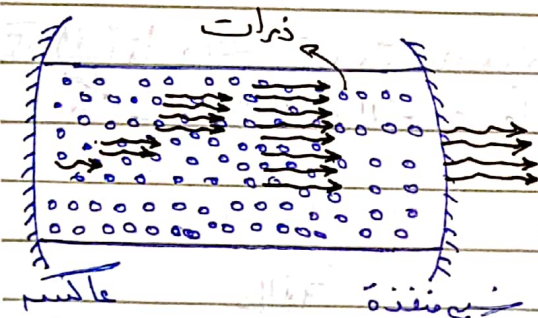 ذرات
عاكس
شبه منفذة